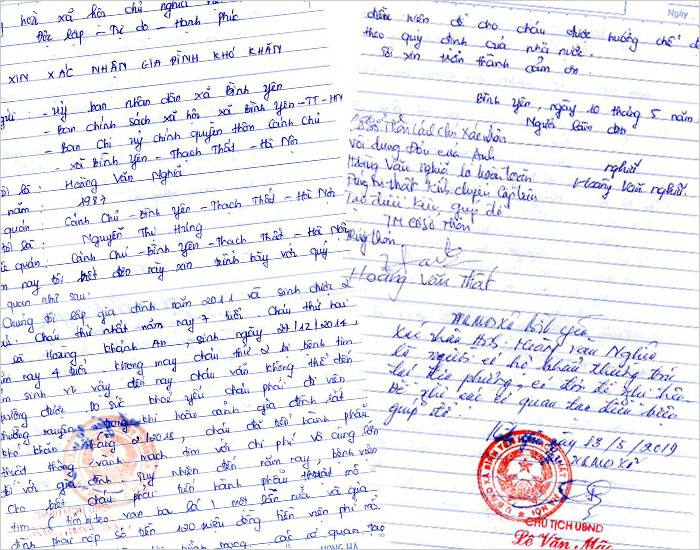 hoà xã hội chủ nghĩa
Độc lập - Tự do - Hạnh phúc
XIN XÁC NHẬN GIA ĐÌNH KHÓ KHĂN
gửi: - Uỷ ban nhân dân xã Bình Yên
- Ban chính sách xã hội xã Bình Yên - TT - HN
- Ban Chỉ uỷ chính quyền thôn Cánh Chủ
- xã Bình Yên - Thạch Thất - Hà Nội
là: Hoàng Văn Nghĩa
năm: 1987
quán: Cánh Chủ - Bình Yên - Thạch Thất - Hà Nội
là: Nguyễn Thu Hằng
quán: Cánh Chủ - Bình Yên - Thạch Thất - Hà Nội
nay tôi viết đơn này xin trình bày với quý
quan như sau:
Chúng tôi lập gia đình năm 2011 và sinh được 2
Cháu thứ nhất năm nay 7 tuổi. Cháu thứ hai
là Hoàng Khánh An, sinh ngày 27/12/2014,
nay 4 tuổi. không may cháu thứ 2 bị bệnh tim
sinh vì vậy đến nay cháu vẫn không thể đến
trường được. Do sức khoẻ yếu cháu phải đi viện
thường xuyên trong khi hoàn cảnh gia đình rất
khó khăn. Tháng 2/2018, cháu đã tiến hành phẫu
thuật thông vành mạch tim với chi phí vô cùng lớn
đối với gia đình. Tuy nhiên đến năm nay, bệnh viện
cho biết cháu phải tiến hành phẫu thuật mổ
tim (tim heo van ba lá) một lần nữa và gia
đình phải nộp số tiền 120 triệu đồng tiền viện phí mổ.
mong các cơ quan tạo
HONG HA
điều kiện để cho cháu được hưởng chế độ
theo quy định của nhà nước.
Tôi xin trân thành cảm ơn.
Bình Yên, ngày 10 tháng 5 năm
Người làm đơn
nghĩa
Hoàng Văn nghĩa.
Thôn Cánh Chủ Xác nhận
với dung Đơn của Anh
Hoàng Văn nghĩa là hoàn toàn
Đúng sự thật kính chuyển Cấp trên
Tạo điều kiện giúp đỡ
TM
Hoàng Văn Thất
Xác nhận
Hoàng Văn Nghĩa
là người có hộ khẩu thường trú
tại địa phương, có đơn đề nghị trên
Đề nghị các cơ quan tạo điều kiện
giúp đỡ.
ngày 13/5/2019
CHỦ TỊCH UBND
Lê Văn